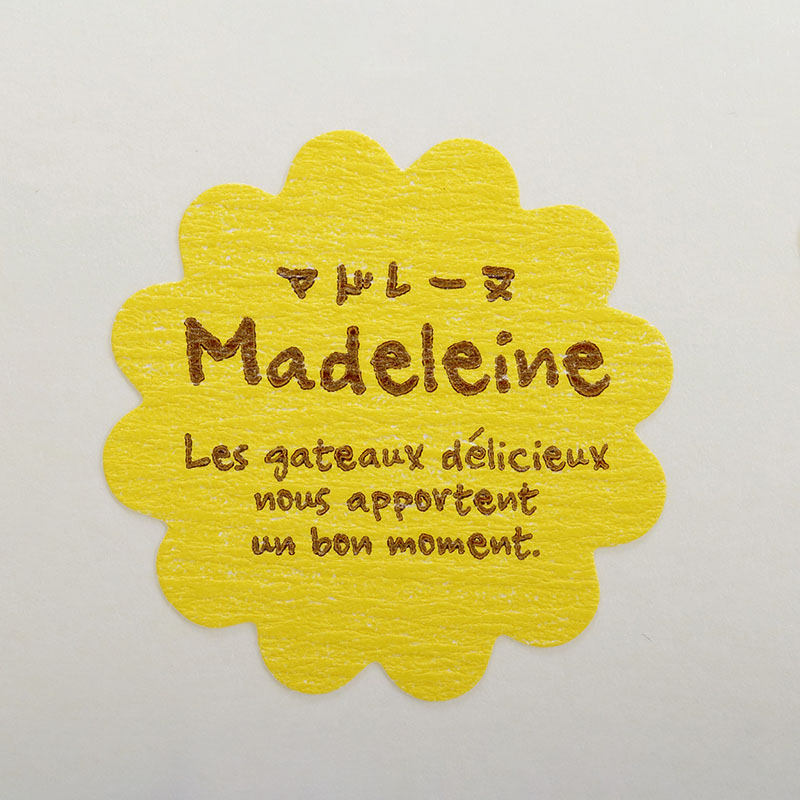 マドレーヌ
Madeleine
Les gateaux délicieux
nous apportent
un bon moment.